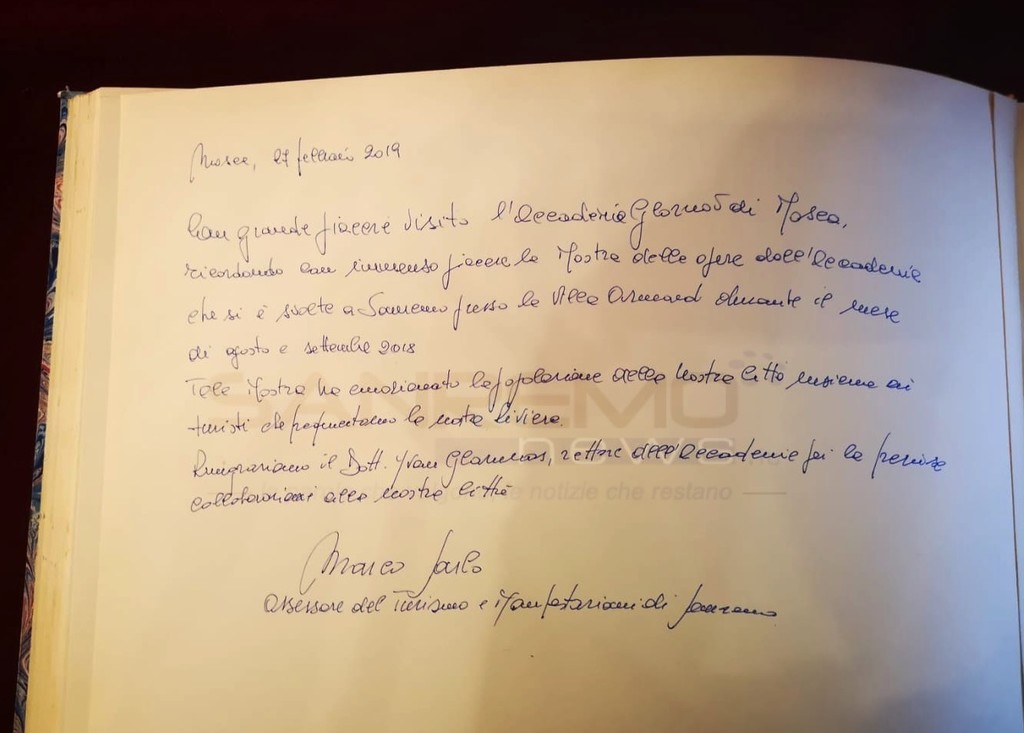 Mosca, 27 febbraio 2019
Con grande piacere visito l'Accademia Glazunov di Mosca,
ricordando con immenso piacere la Mostra delle opere dell'Accademia
che si è svolta a Sanremo presso la Villa Ormond durante il mese
di agosto e settembre 2018
Tale Mostra ha emozionato la popolazione della nostra città insieme ai
turisti che frequentano la nostra riviera.
Ringraziamo il Dott. Yvan Glazunov, rettore dell'Accademia per la preziosa
collaborazione alla nostra città
Marco Sarlo
Assessore del Turismo e Manifestazioni di Sanremo
SANREMO
news
notizie che restano